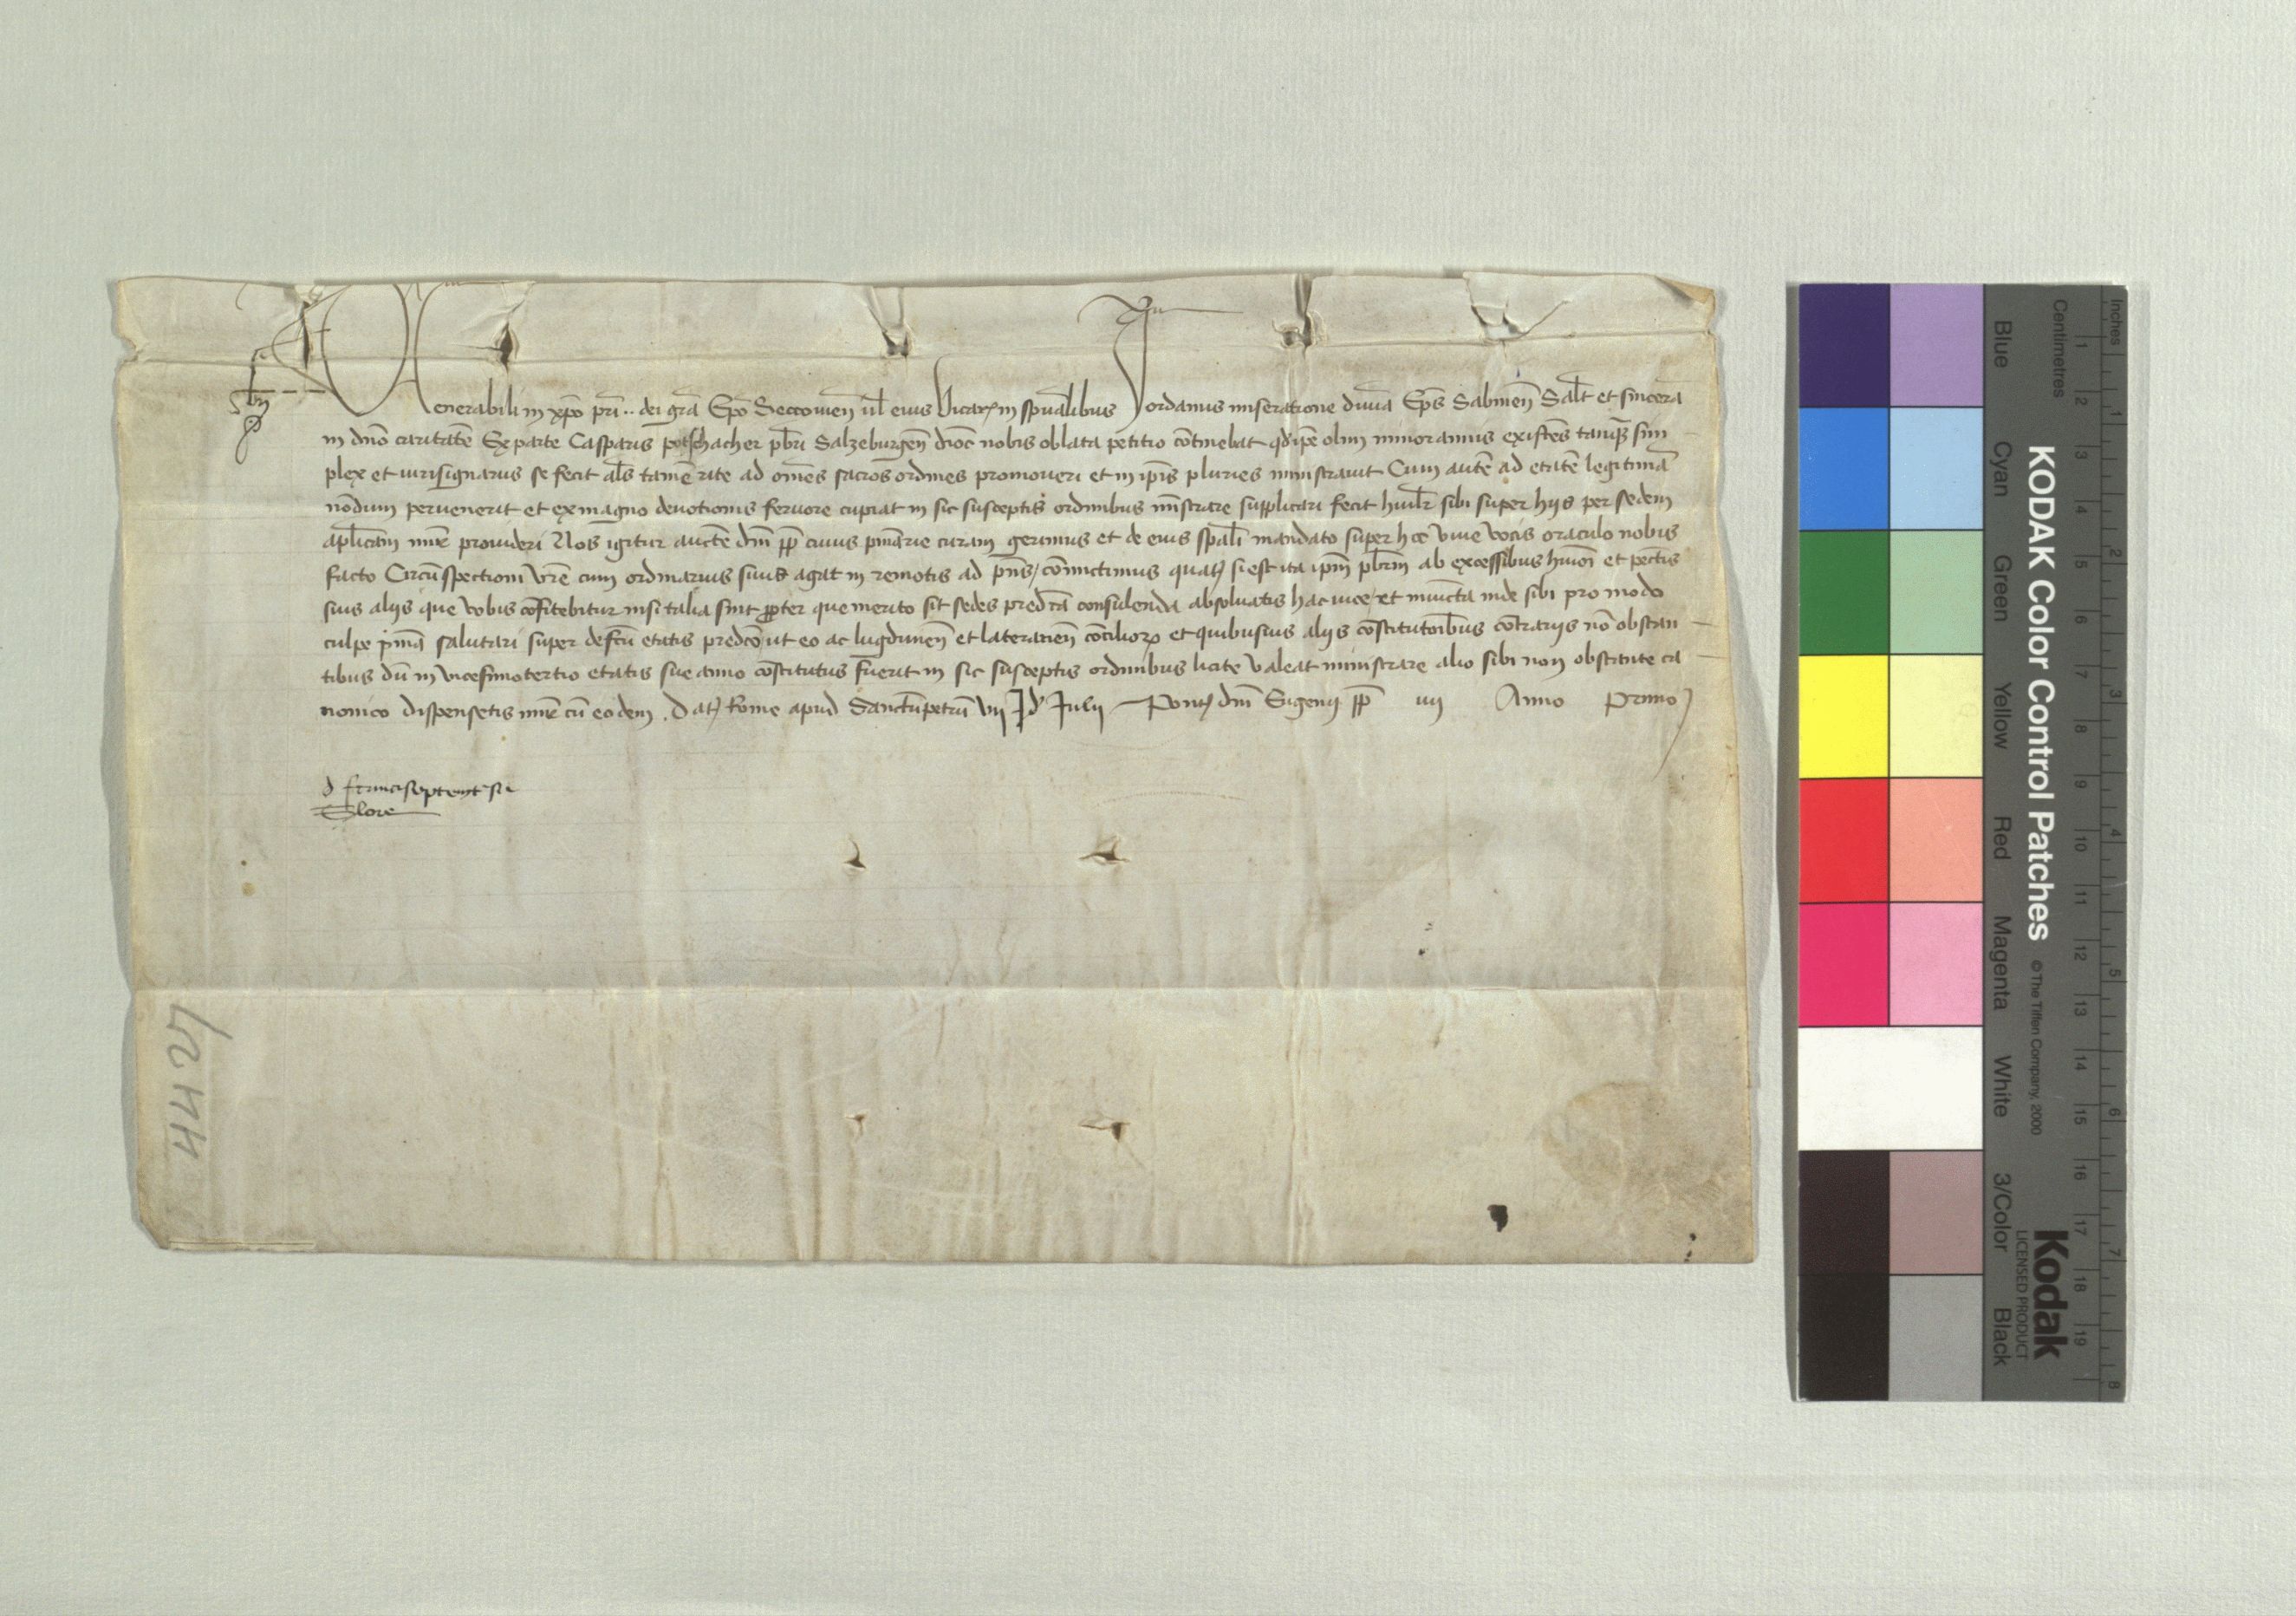 Venerabili in xpo pri .. dei gra Epo Seccowien ul eius Vicario in spualibus Jordanus miseratione diuina Eps Sabinen Salt et sincera
in dno caritate Ex parte Casparis potschacher pbri Salzeburgen dioc nobis oblata petitio continebat qd ipe olim minor annis existes tanq sim
plex et iurisignarus se fecit als tame rite ad omes sacros ordines promoueri et in ipis pluries ministrauit Cum aute ad etate legitima
nodum peruenerit et ex magno deuotionis feruore cupiat in sic susceptis ordinibus ministrare supplicari fecit huilr sibi super hijs per sedem
aplicam mire prouideri Nos igitur aucte dni pp cuius pmarie curam gerimus et de eius spali mandato super hoc viue vocis oraculo nobis
facto Circuspectioni vre cum ordinarius suus agat in remotis ad pns comittimus quat si est ita ipm pbrm ab excessibus hmoi et pectis
suis alijs que vobis cofitebitur nisi talia sint propter que merito sit sedes predcta consulenda absoluatis hac uice et iniucta inde sibi pro modo
culpe pnia salutari super defcu etatis predco ut eo ac lugdunen et lateranen conciliorum et quibusuis alijs costitutoibus cotrarijs no obstan
tibus du in vicesimotertio etatis sue anno costitutus fuerit in sic susceptis ordinibus licite valeat ministrare alio sibi non obstante ca
nonico dispensetis mire cu eodem . Dat Rome apud Sanctupetru viij Jd Julij Pont dni Eugenij pp iiij Anno Primo
44 27
KODAK Color Control Patches
© The Tiffen Company, 2000
Kodak
LICENSED PRODUCT
Blue Cyan Green Yellow Red Magenta White 3/Color Black
Centimetres 1 2 3 4 5 6 7 8 9 10 11 12 13 14 15 16 17 18 19
Inches 1 2 3 4 5 6 7 8